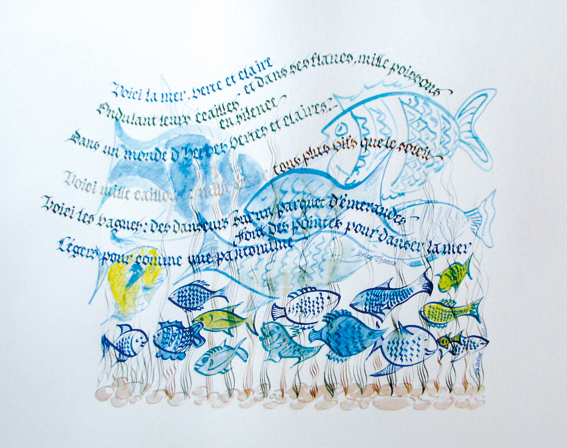 Voici la mer, verte et claire
- et dans ses flancs, mille poissons
Ondulant leurs écailles -
en silence
Dans un monde d'herbes vertes et claires,-
tous plus vifs que le soleil
Voici mille cailloux, mille
Voici les vagues; des danseurs sur un parquet d'émeraudes
Font des pointes pour danser la mer
Légers pour comme une pantomime